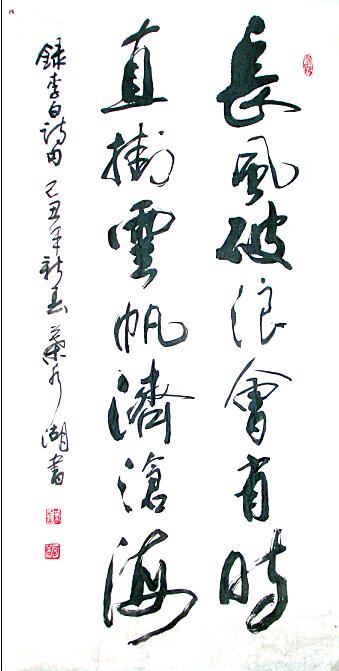 長風破浪會有時
直掛雲帆濟滄海
錄李白詩句 己丑年新春 葉水湖書